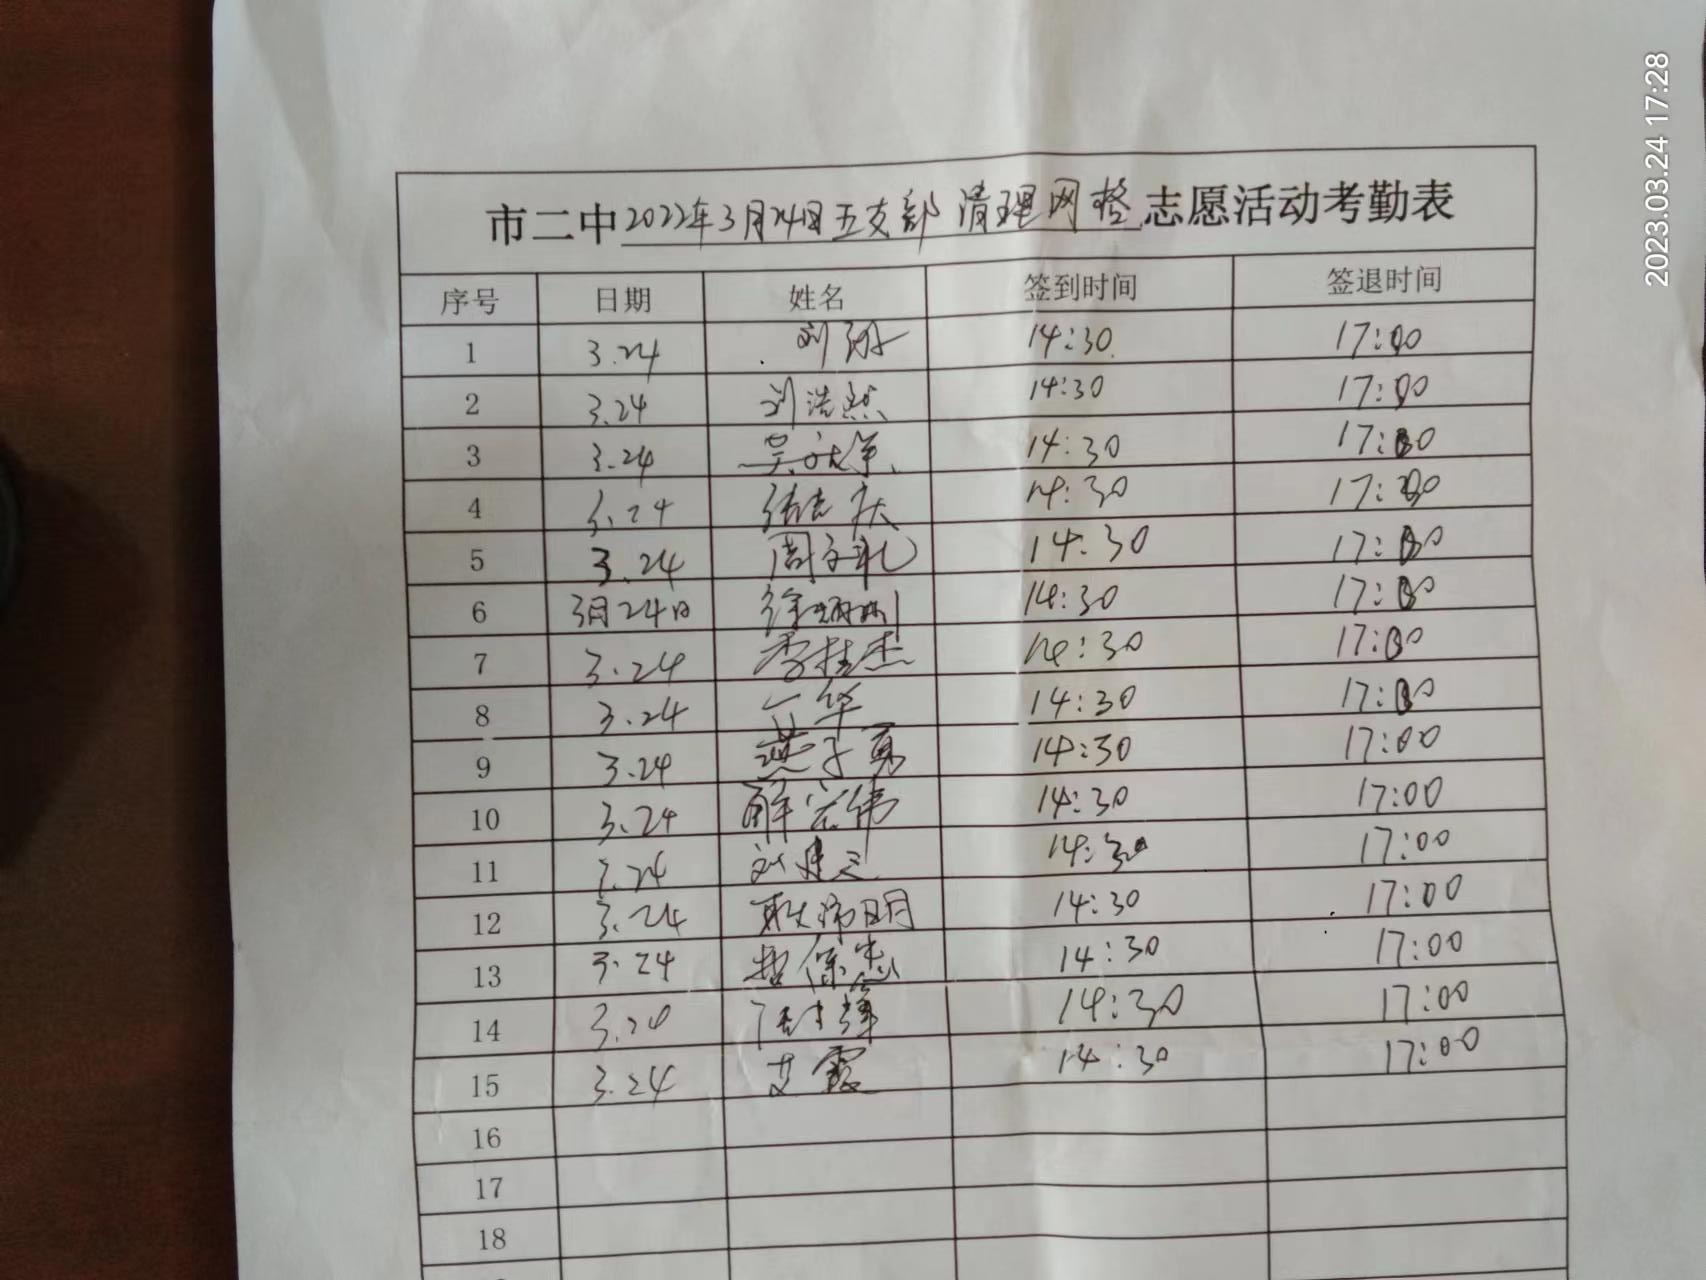 2023.03.24 17:28
市二中2022年3月24日五支部 清理网格志愿活动考勤表
序号 日期 姓名 签到时间 签退时间
1 3.24 刘 14:30 17:00
2 3.24 刘浩然 14:30 17:00
3 3.24 吴 14:30 17:00
4 3.24 14:30 17:00
5 3.24 周子礼 14:30 17:00
6 3月24日 徐 14:30 17:00
7 3.24 李桂杰 14:30 17:00
8 3.24 华 14:30 17:00
9 3.24 燕子勇 14:30 17:00
10 3.24 解宏伟 14:30 17:00
11 3.24 刘建 14:30 17:00
12 3.24 耿沛明 14:30 17:00
13 3.24 保忠 14:30 17:00
14 14:30 17:00
15 3.24 艾霞 14:30 17:00
16
17
18